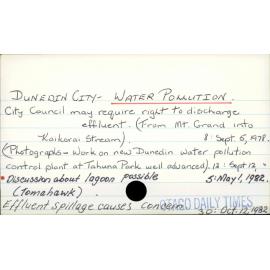 DUNEDIN CITY - WATER POLLUTION.
City Council may require right to discharge
effluent. (From Mt. Grand into
Kaikorai Stream). 8: Sept. 5, 1978.
(Photographs - Work on new Dunedin water pollution
control plant at Tahuna Park well advanced). 12: Sept 12, "
• Discussion about lagoon possible 5: May 1, 1982.
(Tomahawk).
Effluent Spillage causes concern
OTAGO DAILY TIMES
30: Oct. 12, 1982